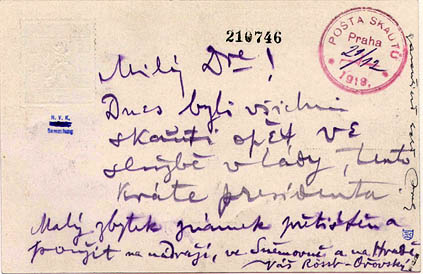 210746
POŠTA SKAUTŮ
Praha
21/12
1918.
N. V. K.
Sammlung
Milý Dre!
Dnes byli všichni
skauti opět ve
službě vlády, tento
kráte presidenta
Malý zbytek známek přetištěn a
použit na nádraží, ve Sněmovně a na Hradě
Váš Rössler-Ořovský